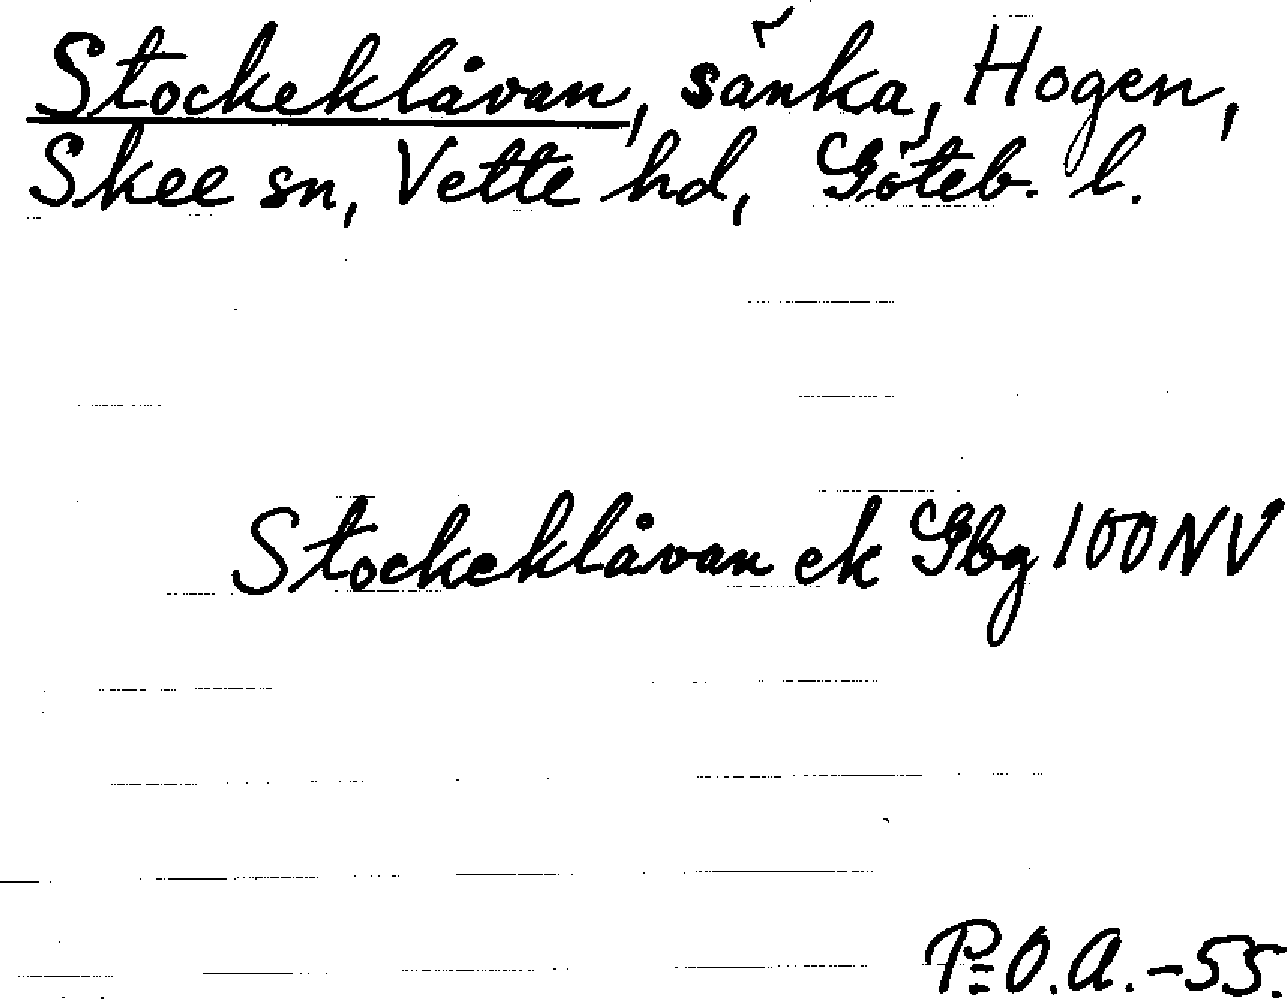 Stockeklåvan, sänka, Hogen,
Skee sn, Vette hd, Göteb. l.
Stockeklåvan ek Gbg 100 NV
P.O.A. -55.